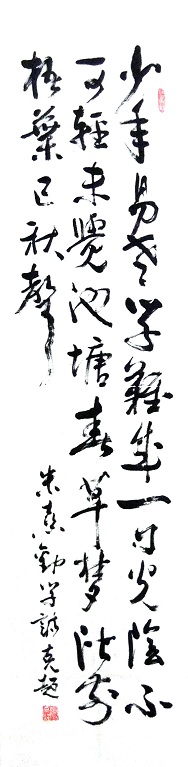 少年易老学難成一寸光陰不
可輕未覺池塘春草夢階前
梧葉已秋聲
朱熹勸学詩